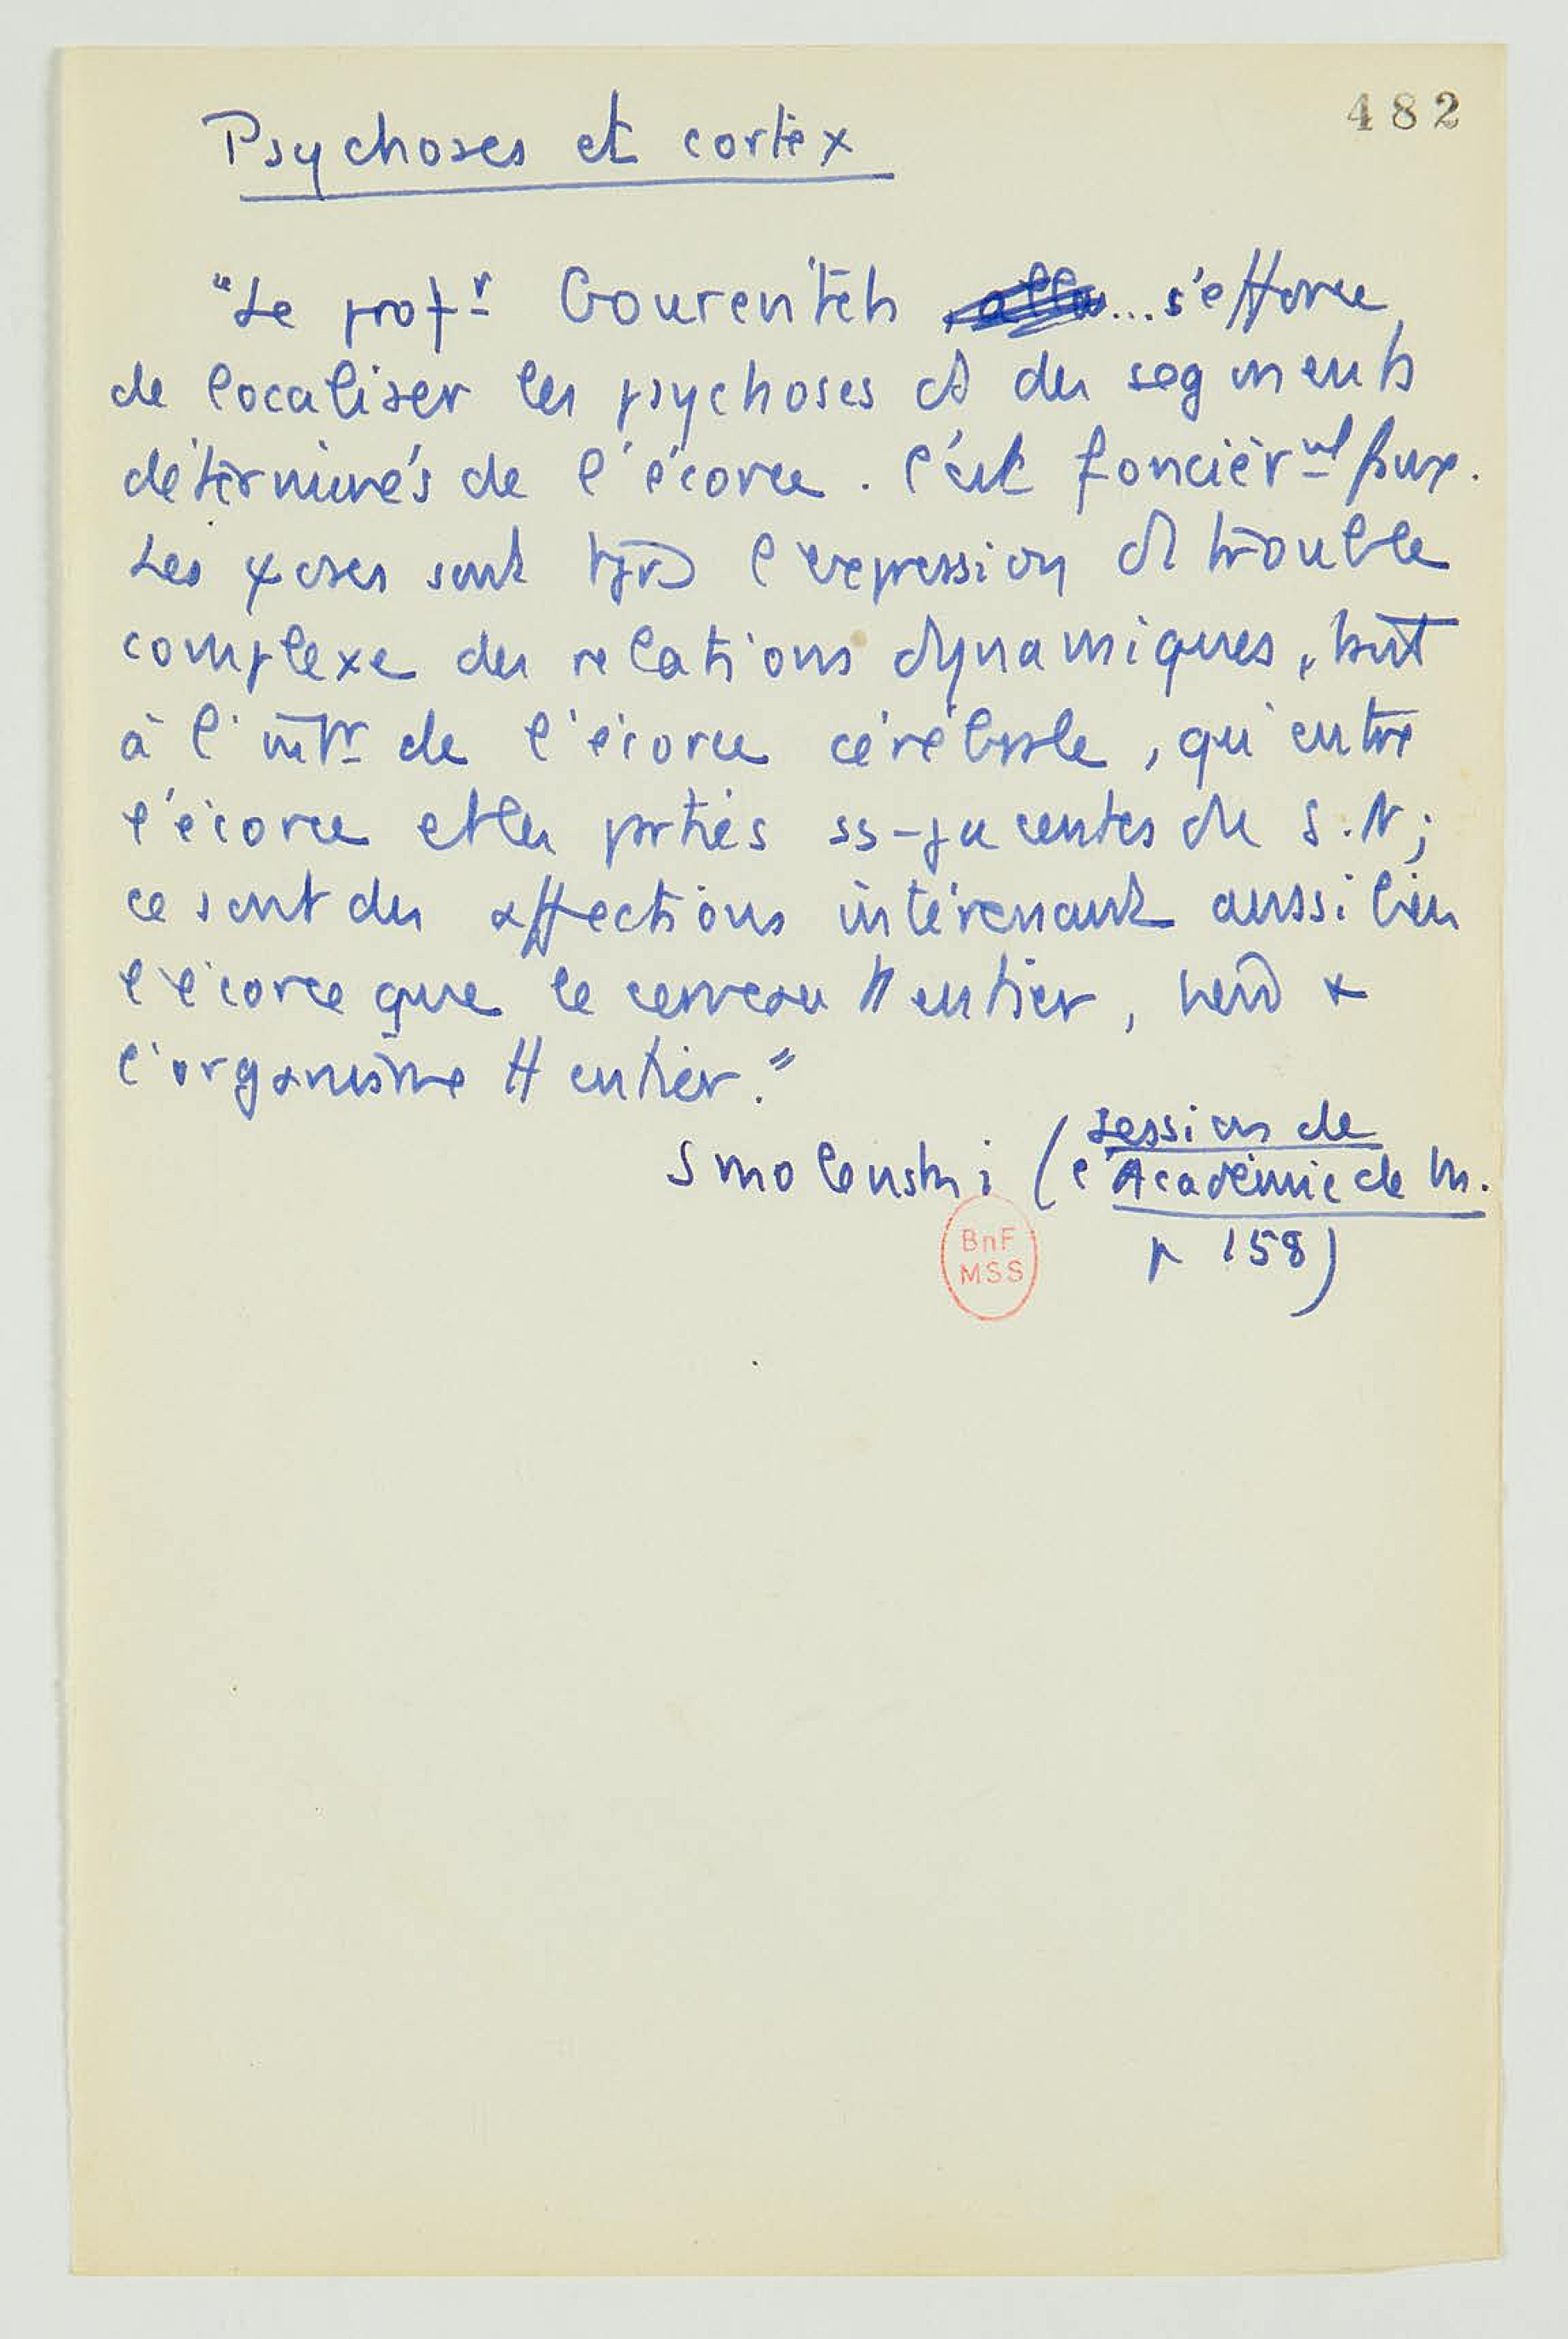 482
Psychoses et cortex
"Le profr Gourevitch ... s'efforce
de localiser les psychoses ds des segments
déterminés de l'écorce. C'est foncièrmt faux.
Les ψoses sont tjrs l'expression d'1 trouble
complexe des relations dynamiques, tant
à l'intr de l'écorce cérébrale, qu'entre
l'écorce et les parties ss-jacentes du S.N;
ce sont des affections intéressant aussi bien
l'écorce que le cerveau tt entier,
l'organisme tt entier."
Smolenski (Session de
l'Académie de M.
p 158)
BnF
MSS